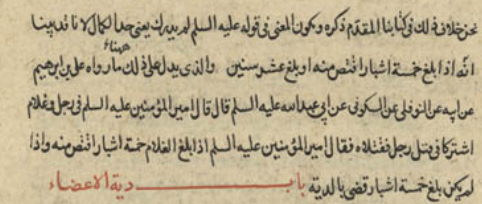 نحن خلاف ذلك في كتابنا المقدم ذكره ويكون المعنى في قوله عليه السلم لم يدرك يعنى حد الكمال لانا قد بينا
هيهنا
انه اذا بلغ خمسة اشبار اقتص منه او بلغ عشر سنين والذى يدل على ذلك ما رواه على بن ابرهيم
عن ابيه عن النوفلى عن السكونى عن ابى عبد الله عليه السلم قال قال امير المؤمنين عليه السلم فى رجل وغلام
اشتركا فى قتل رجل فقتلاه فقال امير المؤمنين عليه السلم اذا بلغ الغلام خمسة اشبار اقتص منه واذا
لم يكن بلغ خمسة اشبار قضى بالدية باب دية الاعضاء